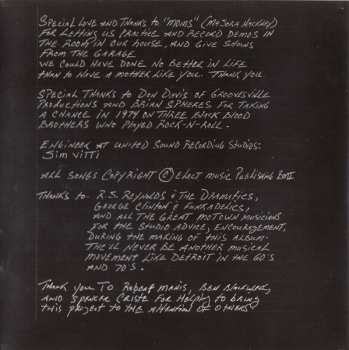 Special Love and Thanks to "Moms" (Mrs Dora Hackney)
for letting us practice and record demos in
the room in our house, and give shows
from the garage
we could have done no better in life
than to have a mother like you. Thank you
Special Thanks to Don Davis of Groovesville
Productions and Brian Spheres for taking
a chance in 1974 on three Black Blood
Brothers who played Rock-N-Roll.
Engineer at United Sound Recording Studios:
Jim Vitti
All songs copyright © Elect Music Publishing BMI
Thanks to- R.S. Reynolds & The Dramatics,
George Clinton & Funkadelics,
and all the great Motown musicians
for the studio advice, encouragement,
during the making of this album.
The'll never be another musical
movement like Detroit in the 60's
and 70's.
Thank you to Robert Manis, Ben Blackwell,
and Spencer Criste for helping to bring
this project to the attention of others